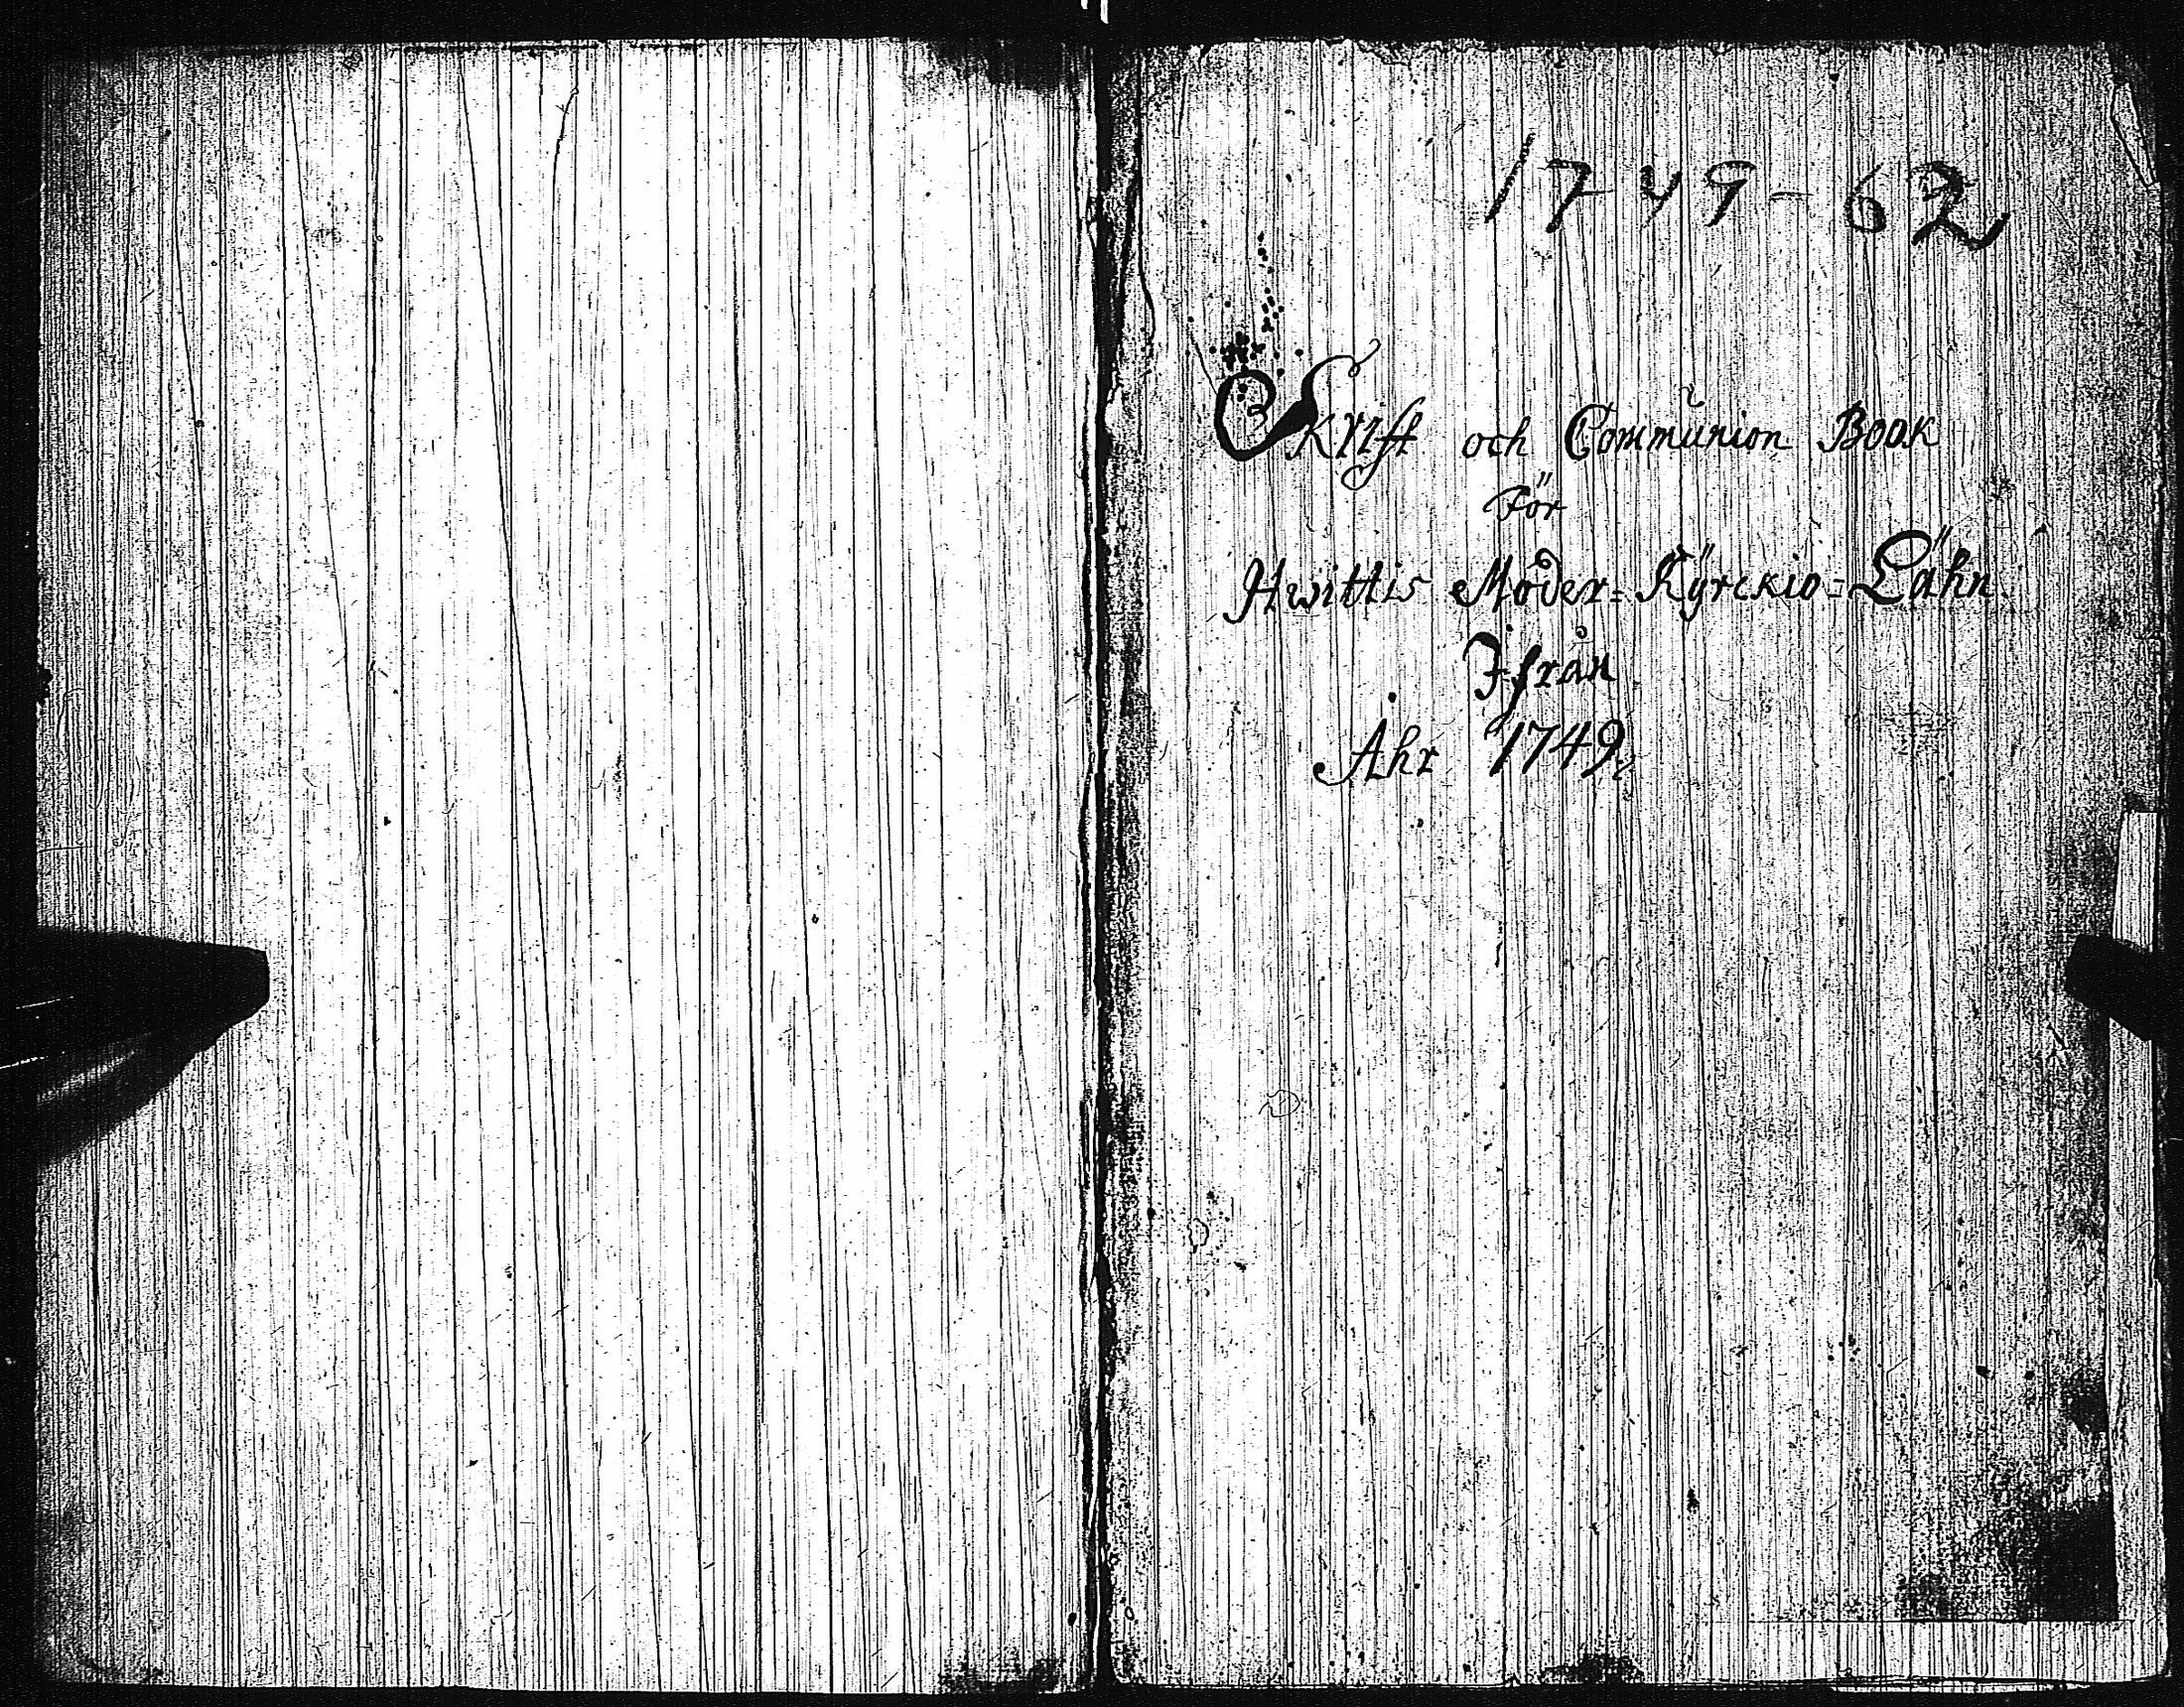 1749-62
Skrift och Communion Book
För
Hwittis Moder=Kyrckio=Lähn.
Ifrån
Åhr 1749.